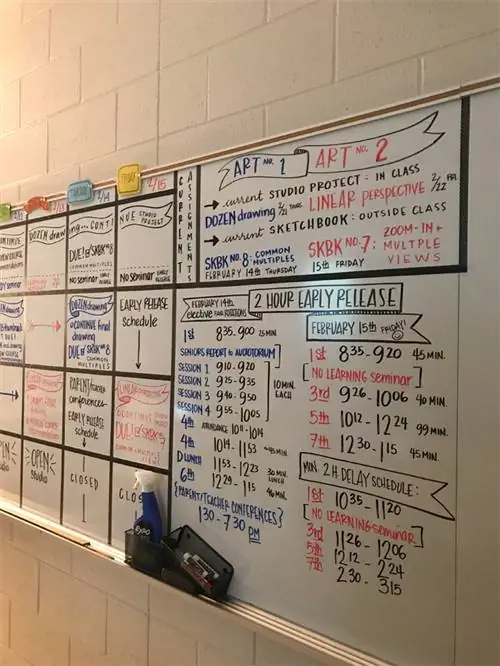 2/14
2/15
CURRENT ASSIGNMENTS
ART NO. 1
ART NO. 2
→ current STUDIO PROJECT: IN CLASS
DOZEN drawing 2/21 THURS.
LINEAR PERSPECTIVE 2/22 FRI.
→ current SKETCHBOOK: OUTSIDE CLASS
SKBK NO. 8: COMMON MULTIPLES
FEBRUARY 14th THURSDAY
SKBK NO. 7: ZOOM-IN + MULTPLE VIEWS
15th FRIDAY
DUE! SKBK NO. 8
COMMON MULTIPLES
No seminar
NUE STUDIO PROJECT
No seminar
DOZEN drawing
CONTINUE final DOZEN drawing
DUE SKBK NO. 8
COMMON MULTIPLES
EARLY RELEASE schedule
PARENT/teacher conferences
EARLY RELEASE schedule
OPEN studio
CLOSED
2 HOUR EARLY RELEASE
FEBRUARY 14th
elective FAIR ROTATIONS
1st 8:35-9:00 25 MIN
SENIORS REPORT to AUDITORIUM
SESSION 1 9:10-9:20
SESSION 2 9:25-9:35
SESSION 3 9:40-9:50
SESSION 4 9:55-10:05
10 MIN. EACH
4th ATTENDANCE 10:11-10:14
4th 10:14-11:53
D LUNCH 11:53-12:23 30 MIN. LUNCH
6th 12:29-1:15 46 MIN.
{PARENT/TEACHER CONFERENCES}
1:30-7:30 PM
FEBRUARY 15th FRIDAY!
1st 8:35-9:20 45 MIN.
[NO LEARNING seminar]
3rd 9:26-10:06 40 MIN.
5th 10:12-12:24 99 MIN.
7th 12:30-1:15 45 MIN.
2H DELAY SCHEDULE:
1st 10:35-11:20
[NO LEARNING seminar]
3rd 11:26-12:06
5th 12:12-2:24
7th 2:30-3:15
EXPO